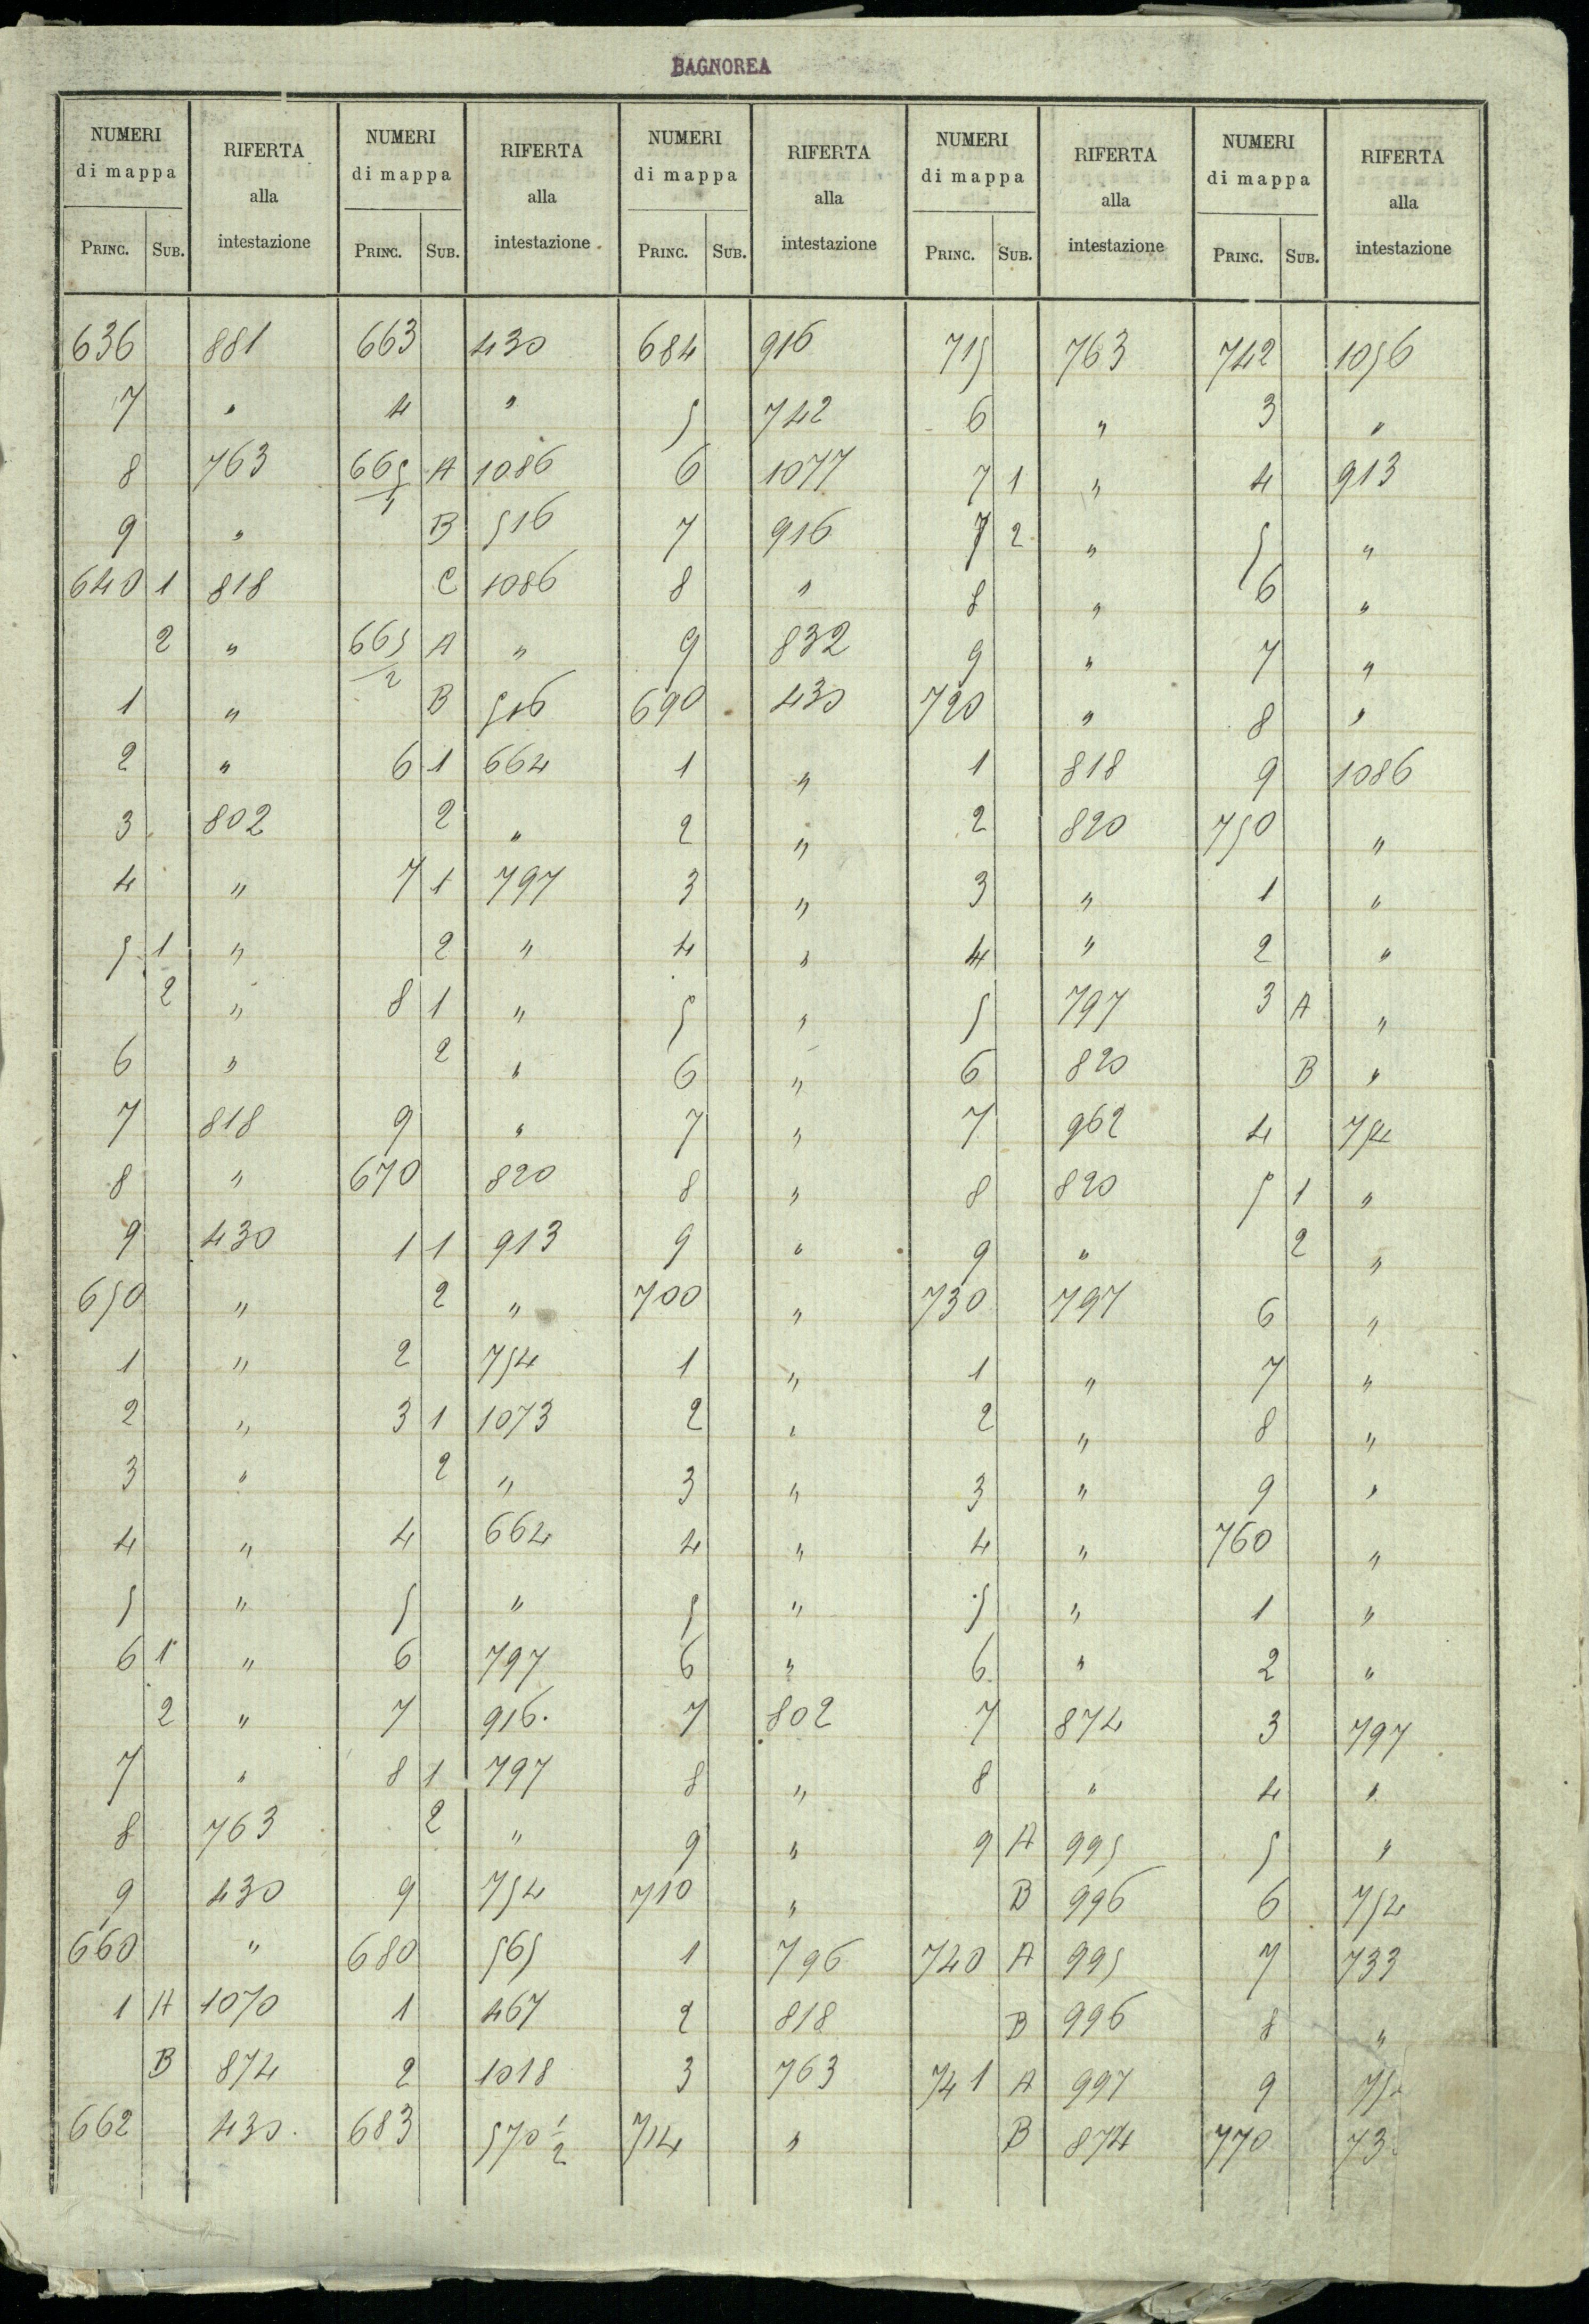 BAGNOREA
NUMERI di mappa RIFERTA alla intestazione NUMERI di mappa RIFERTA alla intestazione NUMERI di mappa RIFERTA alla intestazione NUMERI di mappa RIFERTA alla intestazione NUMERI di mappa RIFERTA alla intestazione
PRINC. SUB. PRINC. SUB. PRINC. SUB. PRINC. SUB. PRINC. SUB.
636 881 663 430 684 916 715 763 742 1056
7 " 4 " 5 742 6 " 3 "
8 763 665/1 A 1086 6 1077 7 1 " 4 913
9 " B 516 7 916 7 2 " 5 "
640 1 818 C 1086 8 " 8 " 6 "
2 " 665/2 A " 9 832 9 " 7 "
1 " B 516 690 430 720 " 8 "
2 " 6 1 664 1 " 1 818 9 1086
3 802 2 " 2 " 2 820 750 "
4 " 7 1 797 3 " 3 " 1 "
5 1 " 2 " 4 " 4 " 2 "
2 " 8 1 " 5 " 5 797 3 A "
6 " 2 " 6 " 6 820 B "
7 818 9 " 7 " 7 962 4 754
8 " 670 820 8 " 8 820 5 1 "
9 430 1 1 913 9 " 9 " 2 "
650 " 2 " 700 " 730 797 6 "
1 " 2 754 1 " 1 " 7 "
2 " 3 1 1073 2 " 2 " 8 "
3 " 2 " 3 " 3 " 9 "
4 " 4 664 4 " 4 " 760 "
5 " 5 " 5 " 5 " 1 "
6 1 " 6 797 6 " 6 " 2 "
2 " 7 916. 7 802 7 874 3 797
7 " 8 1 797 8 " 8 " 4 "
8 763 2 " 9 " 9 A 995 5 "
9 430 9 754 710 " B 996 6 754
660 " 680 565 1 796 740 A 995 7 733
1 A 1070 1 467 2 818 B 996 8 "
B 874 2 1018 3 763 741 A 997 9
662 430. 683 570 1/2 714 " B 874 770